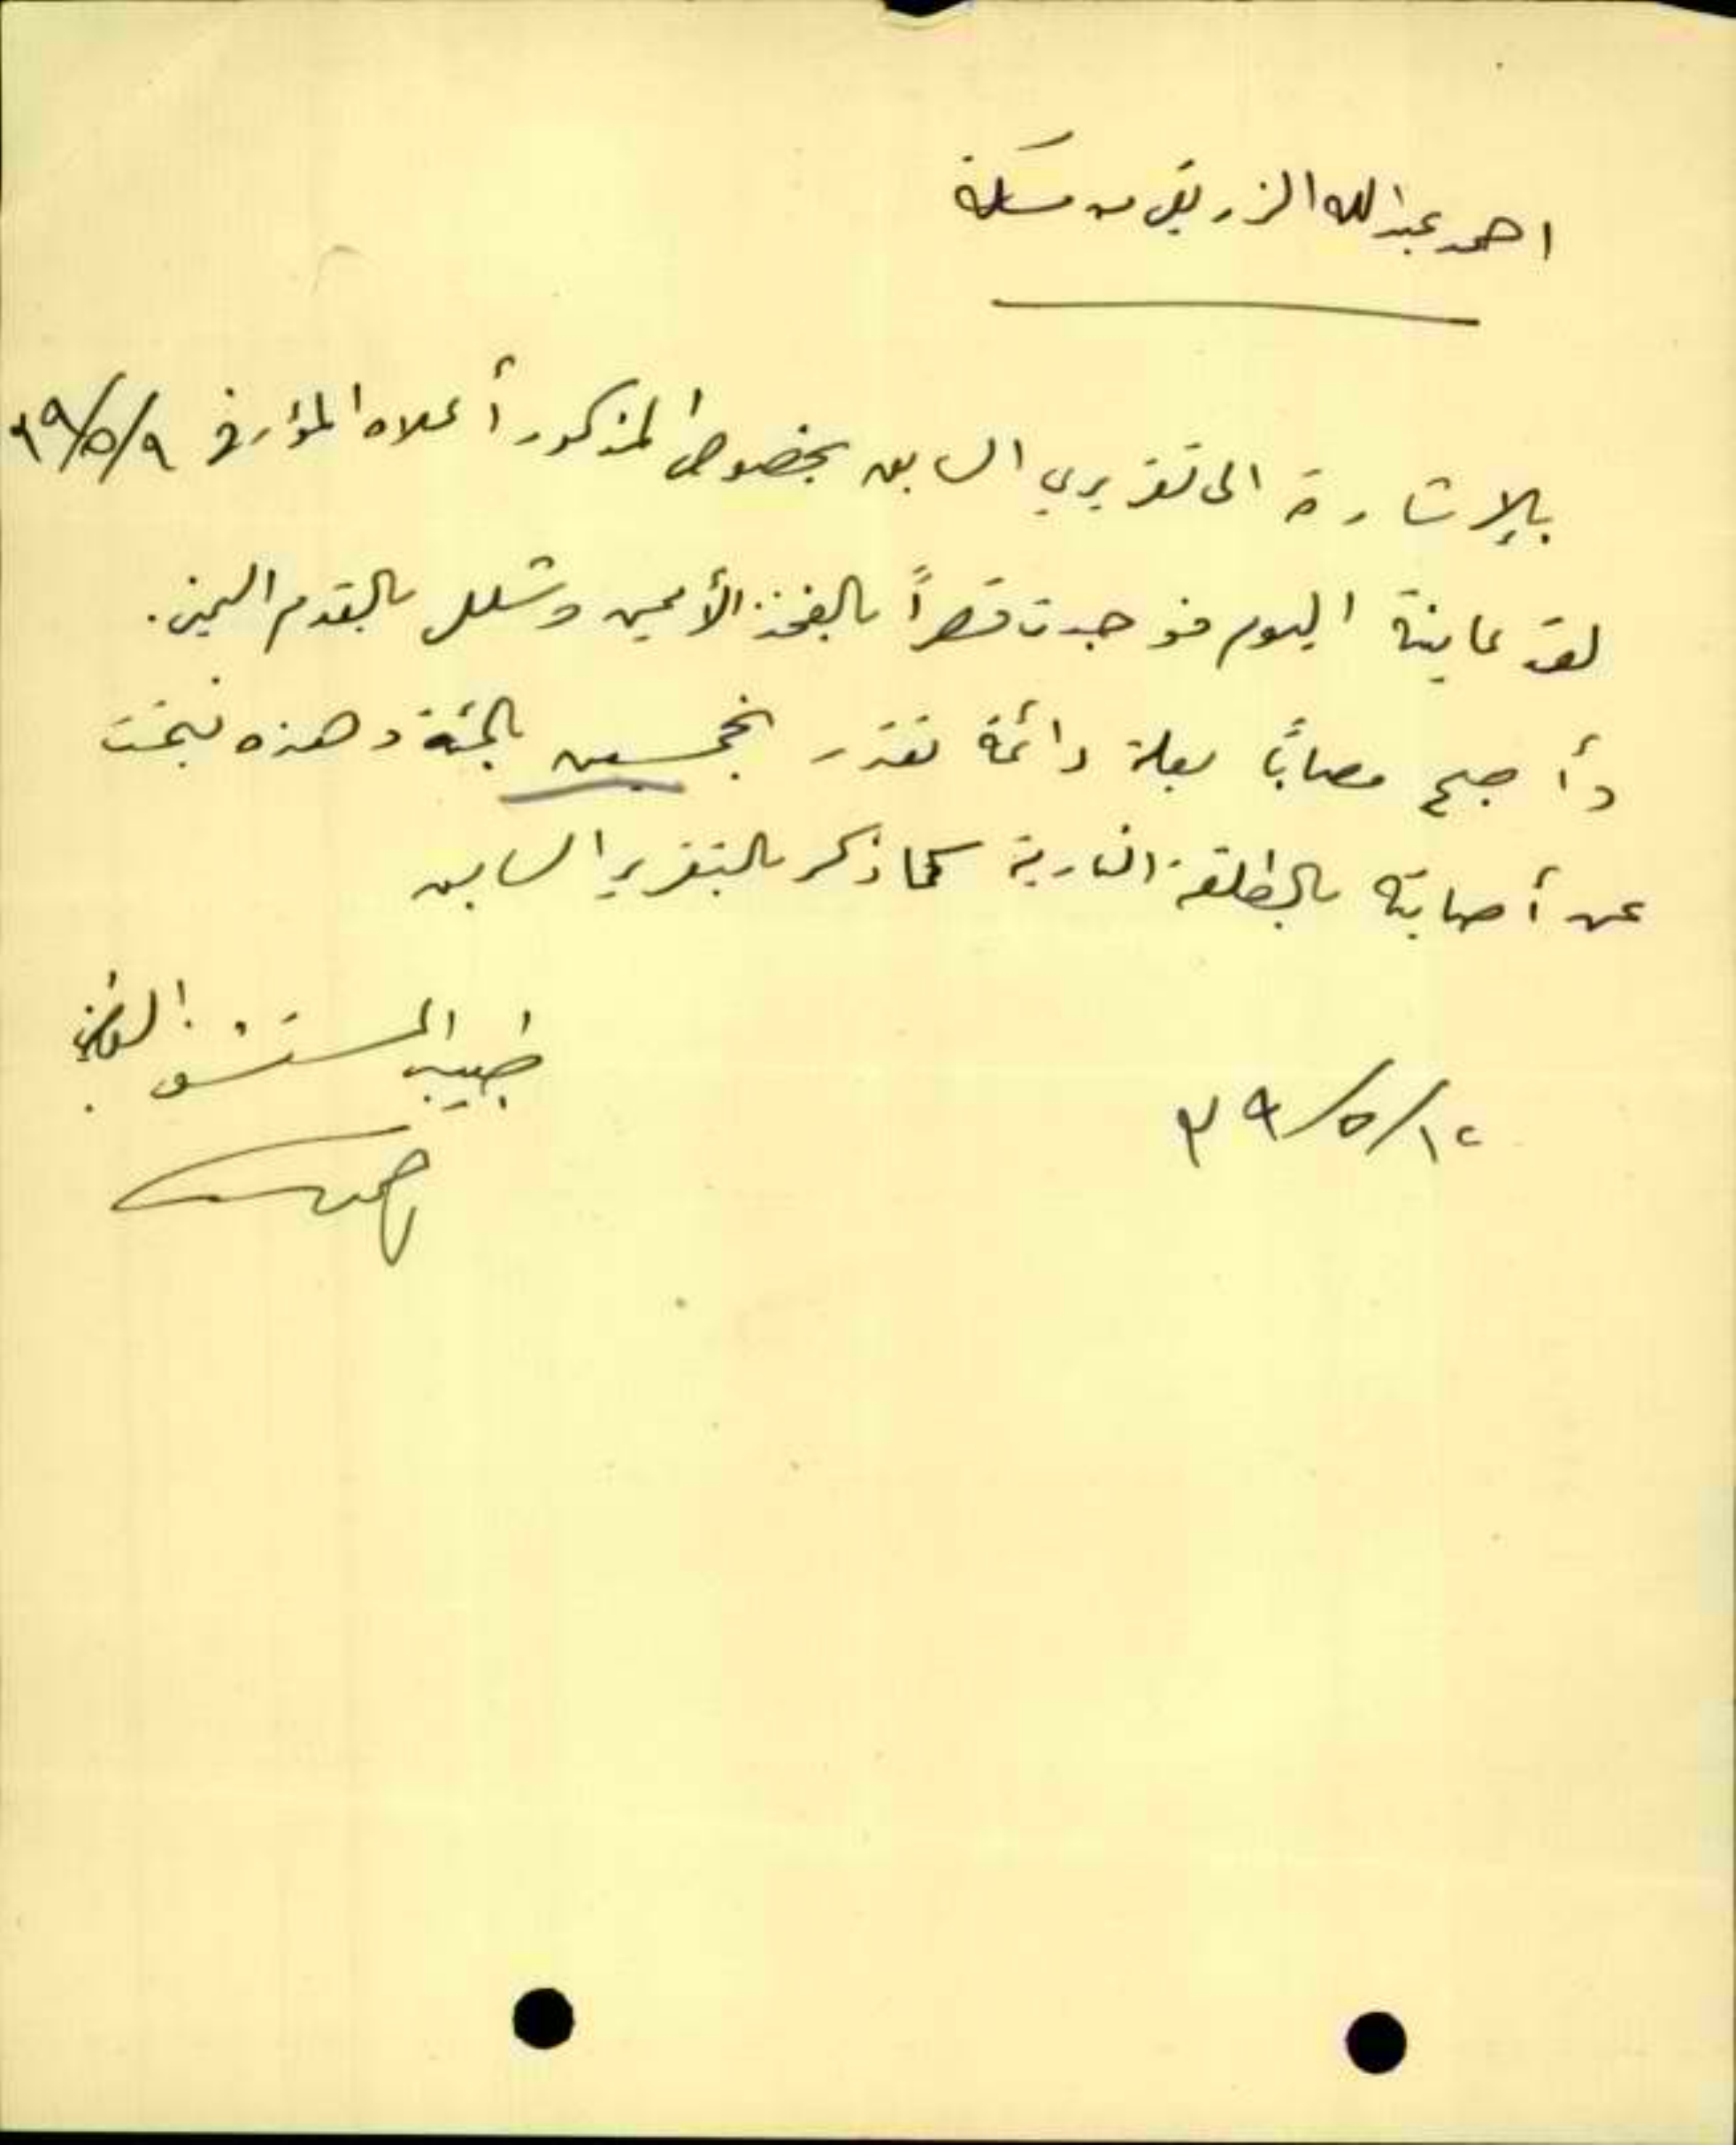 احمد عبدالله الزريقي من مسكة
بالإشارة الى تقريري السابق بخصوص المذكور أعلاه المؤرخ ٩/٥/٣٩
لقد عاينته اليوم فوجدت قصراً بالفخذ الأيمن وشلل بالقدم اليمنى.
وأصبح مصابًا بعلة دائمة تقدر بخمسين بالمئة وهذه نجمت
عن أصابته بالطلقة النارية كما ذكر بالتقرير السابق
طبيب المستشفى
٣٩/٥/١٢